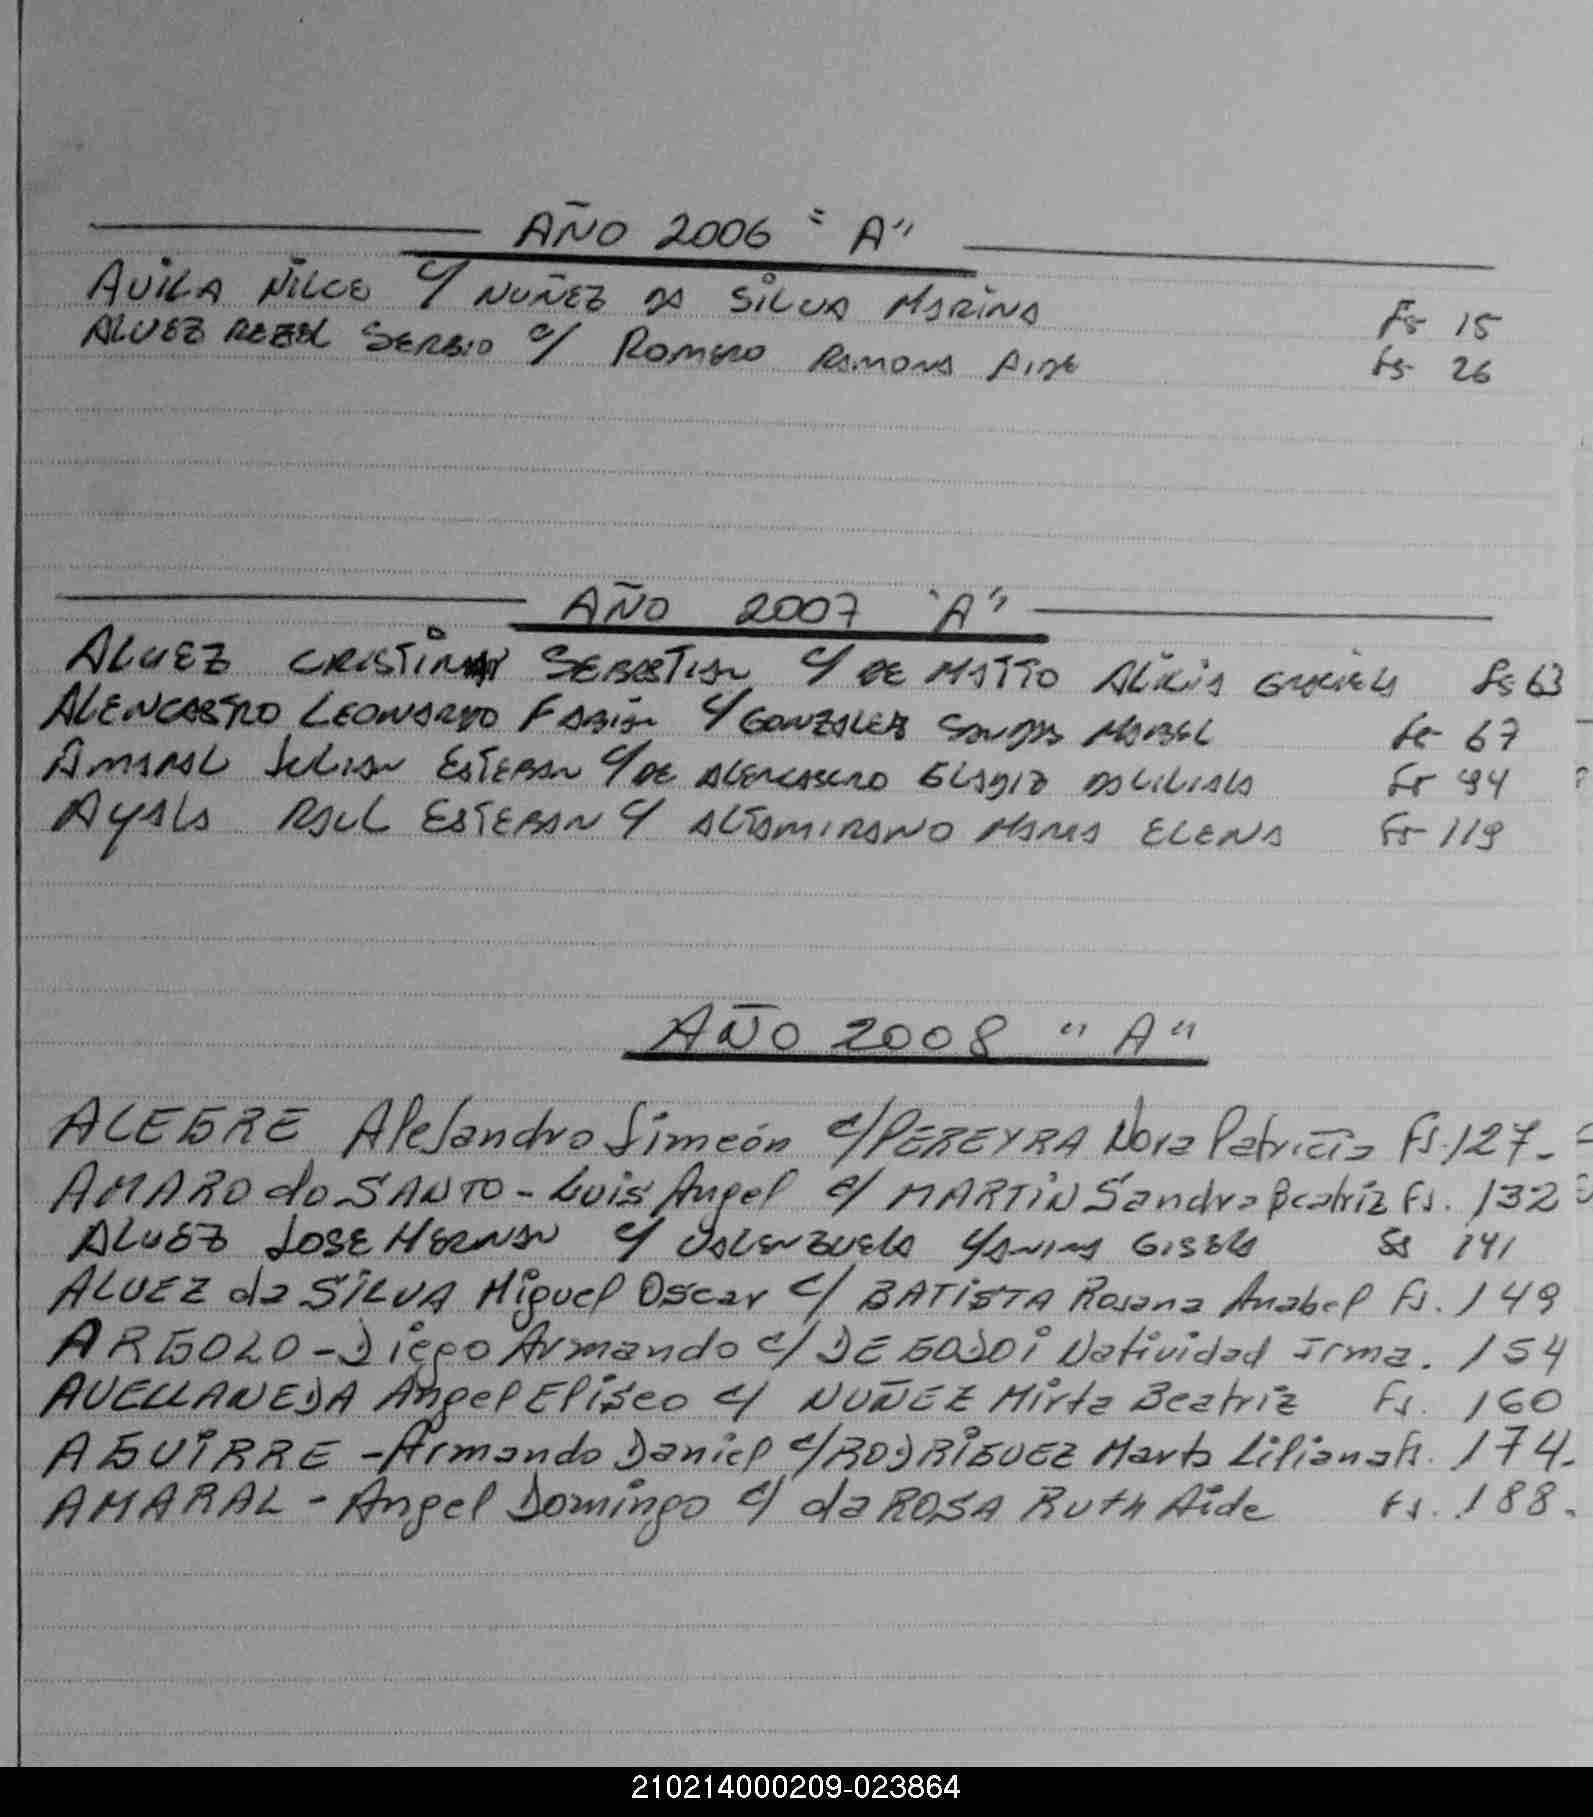 AÑO 2006 "A"
AVILA NILCE C/ NUÑEZ DA SILVA MARINA Fs 15
ALVEZ SERGIO C/ ROMERO RAMONA AIDE Fs 26
AÑO 2007 "A"
ALVEZ CRISTIAN SEBASTIAN C/ DE MATTO ALICIA GRACIELA Fs 63
ALENCASTRO LEONARDO FABIAN C/ GONZALEZ SANDRA MABEL Fs 67
AMARAL JULIAN ESTEBAN C/ DE ALENCASTRO GLADIZ Fs 94
AYALA RAUL ESTEBAN C/ ALTAMIRANO MARIA ELENA Fs 119
AÑO 2008 "A"
ALEGRE Alejandro Simeón c/ PEREYRA Nora Patricia Fs. 127.-
AMARO do SANTO - Luis Angel c/ MARTiN Sandra Beatriz Fs. 132
ALVEZ JOSE HERNAN C/ VALENZUELA YANINA GISELA Fs 141
ALVEZ da SILVA Miguel Oscar c/ BATiSTA Rosana Anabel Fs. 149
ARGOLO - Diego Armando c/ DE GODOi Natividad Irma. 154
AVELLANEDA Angel Eliseo c/ NUÑEZ Mirta Beatriz Fs. 160
AGUiRRE - Armando Daniel c/ RODRiGUEZ Marta Liliana Fs. 174.
AMARAL - Angel Domingo c/ da ROSA Ruth Aide Fs. 188.
210214000209-023864